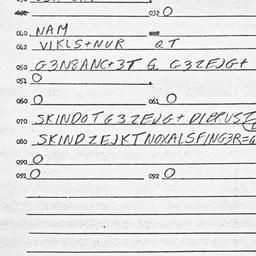 032 O
040 NAM
VIKLS+NUR QT
050 G3N8ANC+3T & G3ZEJG+
051 O
060 O 061 O
070 SKINDOT G3ZEJG+ DIBRUST
080 SKINDZEJKTNOXALSFING3R=
090 O
091 O 092 O